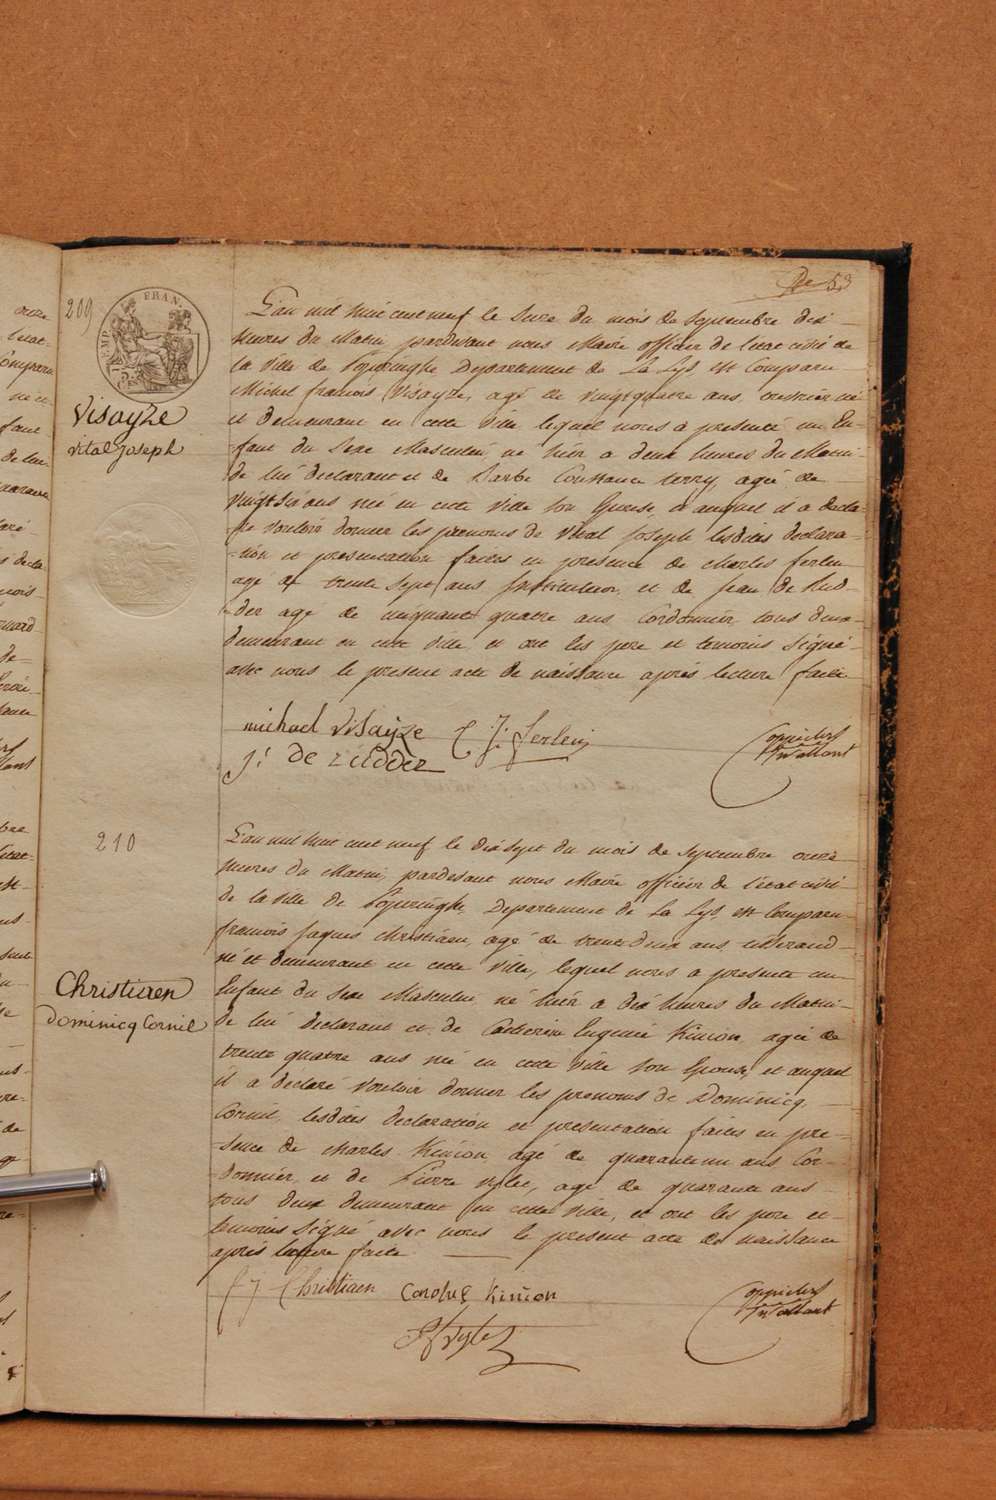 De 53
209
EMP. FRAN.
Visayze
vital joseph
L'an mil huit cent neuf le seize du mois de Septembre dix
heures du Matin, pardevant nous Maire officier de l'etat civil de
la Ville de Poperinghe, Departement de La Lys, est Comparu
Michel francois Visayze, agé de vingtquatre ans, né
et demeurant en cette Ville lequel nous a presenté un En-
-fant du Sexe Masculin, né hièr a deux heures du Matin
de lui declarant et de Barbe Constance terry, agée de
vingt Six ans née en cette Ville Son Epouse, et auquel il a decla-
-ré vouloir donner les prenoms de Vital Joseph lesdites declara-
-tion et presentation faites en presence de charles ferlein
agé de trente Sept ans particulier, et de jean de Rud-
-der agé de cinquant quatre ans, Cordonnier tous deux
demeurant en cette Ville, et ont les pere et temoins Signé
avec nous le present acte de naissance après lecture faite
michael visayze C. J. ferlein
j: De rudder
210
Christiaen
Dominicq Cornil
L'an mil huit cent neuf le dixsept du mois de Septembre onze
heures du Matin, pardevant nous Maire officièr de l'etat civil
de la Ville de Poperinghe, Departement de La Lys, est Comparu
francois Jaques Christiaen, agé de trent deux ans
né et demeurant en cette Ville, lequel nous a presenté un
Enfant du Sexe Masculin né hièr a dix heures du Matin
de lui declarant et de Catherine Eugenie Kinion agée de
trente quatre ans née en cette Ville Son Epouse, et auquel
il a déclaré vouloir donner les prenoms de Dominicq,
Cornil, lesdites declaration et presentation faites en pre-
-sence de charles Kinion agé de quarantenu ans Cor-
-donnier, et de Pierre agé de quarante ans
tous deux demeurant en cette Ville, et ont les pere et
temoins Signé avec nous le present acte de naissance
après lecture faite
f j Christiaen Carolus Kinion